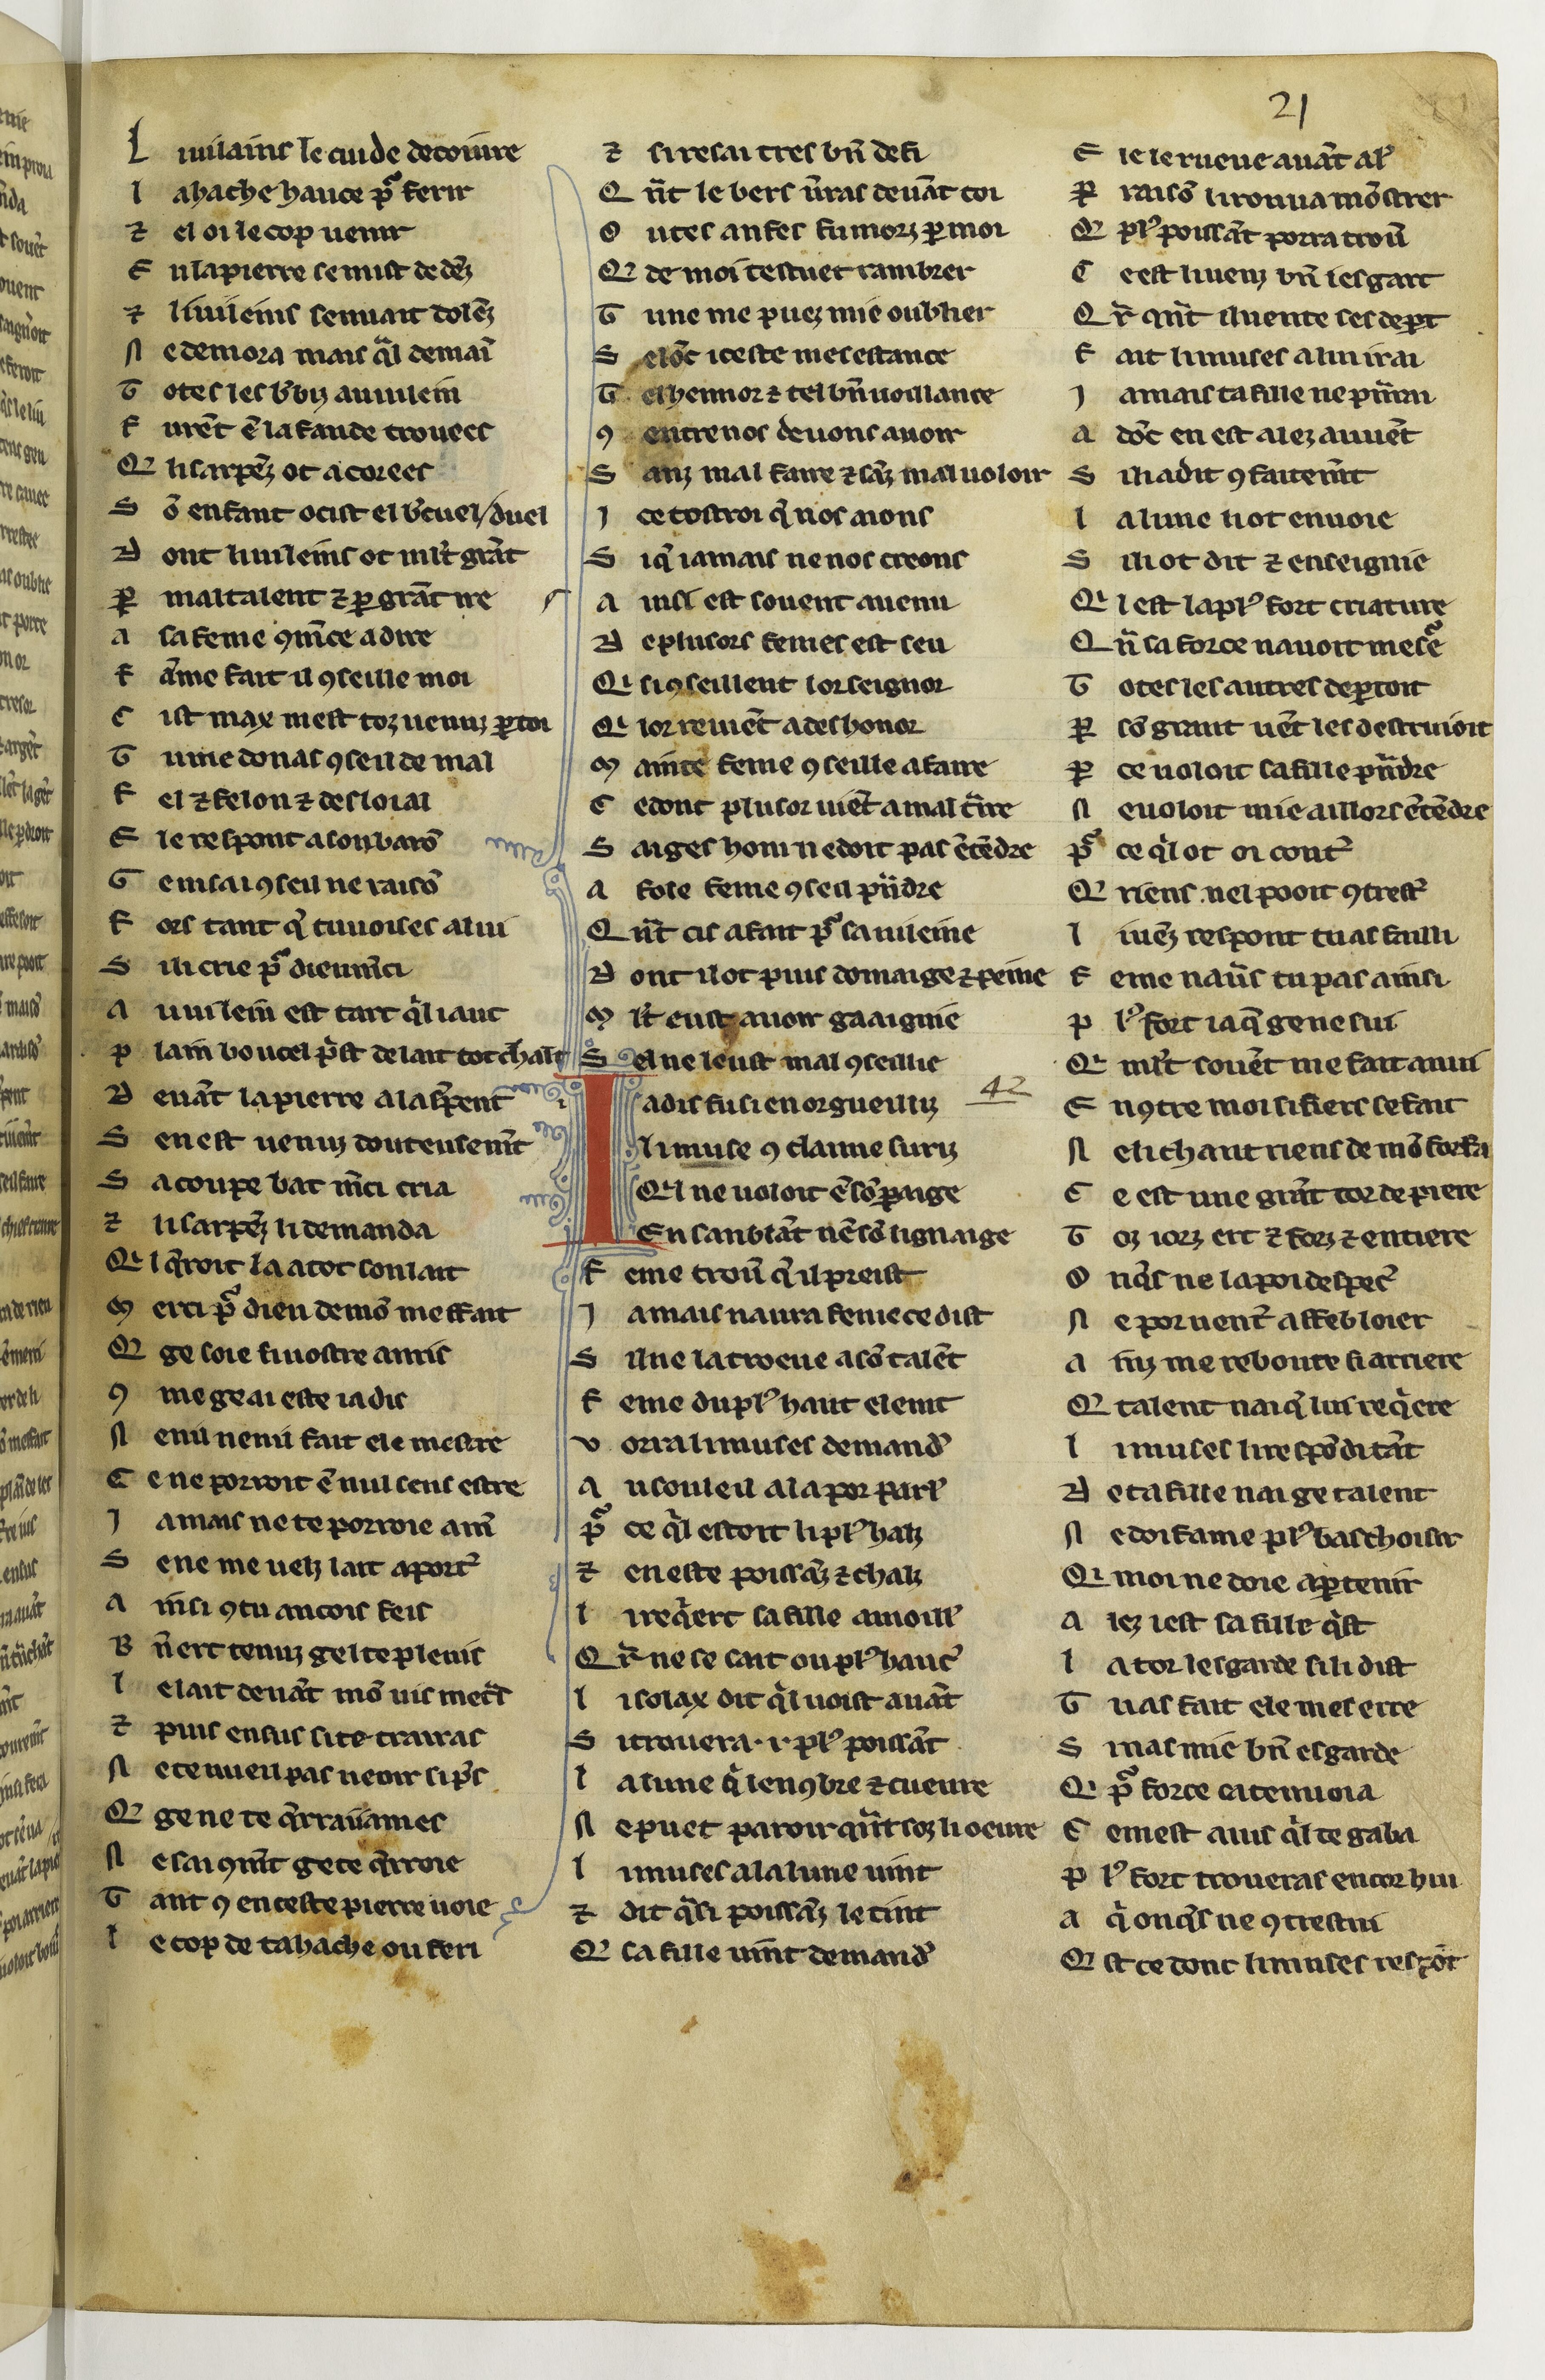 21
L i uilains le cuide decoivre
l a hache hauce pͬ ferir
⁊ el oi le cop uenir
E n la pierre se mist dedēz
⁊ li uileins sen uait dolēz
N e demora mais qͥl demaī
T otes les b̾biz au uilein
F urēt ē la faude trouees
Q li sarpēz ot acorees
S ō enfant ocist el b̾cuel / duel
D ont li uileins ot ml̄t grāt
P̱ maltalent ⁊ ꝑ grāt ire
A sa feme ꝯm̄ce a dire
F āme fait il ꝯseille moi
C ist max mest toz uenuz ꝑ toi
T u me donas ꝯseil de mal
F el ⁊ felon ⁊ desloial
E le respont a son barō
G e ni sai ꝯseil ne raisō
F ors tant q̄ tu uoises a lui
S i li crie pͬ dieu m̄ci
A u uilein est tart qͥl i aut
P lain boucel pͥst de lait tot chalt
D euāt la pierre a la s̾pent
S en est uenuz douteusem̄t
S a coupe bat m̄ci cria
⁊ li sarpēz li demanda
Q l q̄roit la a tot son lait
M erci pͬ dieu de mō meffait
Q ge soie si uostre amis
ꝯ me ge ai este iadis
N enil nenil fait ele mestre
C e ne porroit ē nul sens estre
J amais ne te porroie am̄
S e ne me uelz lait aport̾
A insi ꝯ tu ancois feis
B n̄ ert tenuz gel te pleuis
L e lait deuāt mō uis met̄s
⁊ puis ensus si te trairas
N e te uueil pas ueoir si pͥs
Q ge ne te q̄rrai iames
N e sai ꝯm̄t ge te q̄rroie
T ant ꝯ en ceste pierre uoie
L e cop de ta hache ou feri
⁊ si resai tres bn̄ de fi
Q n̄t le bers u̾ras deuāt toi
O u tes anfes fu morz ꝑ moi
Q de moi testuet rambrer
T u ne me puez mie oublier
S elōc iceste mesestance
T el hennor ⁊ tel bn̄uoillance
ꝯ entre nos deuons auoir
S anz mal faire ⁊ sāz mal uoloir
J ce tostroi q̄ nos aions
S i q̄ iamais ne nos creons
A insi est souent auenu
D e plusors femes est seu
Q si ꝯseillent lor seignor
Q lor reuiēt a deshonor
M ainte feme ꝯseille a faire
C e dont plusor uiēt a mal t̄ire
S aiges hom ne doit pas ētēdre
A fole feme ꝯseil pn̄dre
Q n̄t cis a fait pͬ sa uileine
D ont il ot puis domaige ⁊ peine
M l̄t eust auoir gaaignie
S el ne leust mal ꝯseillie
42
I adis fu si enorgueilliz
li muse ꝯ claime suriz
Ql ne uoloit ē sō paraige
En sanblāt nē sō lignaige
F eme trou̾ q̄ il preist
J amais naura feme ce dist
S il ne la troeue a sō talēt
F eme du plꝰ haut elemt
V orra li muses demand̾
A u souleil ala por parl̾
Pͬ ce qͥl estoit li plꝰ halz
⁊ en este poissāz ⁊ chalz
L i reqͥert sa fille a moill̾
Q r̄ ne se sait ou plꝰ hauc̾
L i solax dit qͥl uoist auāt
S i trouera .i. plꝰ poissāt
L a lune qͥ lenꝯbre ⁊ cueure
N e puet paroir qn̄t soz li oeure
L i muses a la lune uint
⁊ dit qͥ si poissāz le tint
Q sa fille uint demand̾
E le le rueue auāt al̾
P̱ raisō li rouua mōstrer
Q plꝰ poissāt porra trou̾
C e est li uenz bn̄ les gart
Q r̄ qn̄t il uente les depart
F ait li muses a lui irai
J amais ta fille ne pn̄rai
A dōc en est alez au uēt
S i li a dit ꝯfaitem̄t
L a lune li ot enuoie
S i li ot dit ⁊ enseignie
Q l est la plꝰ fort criature
Q n̄ sa force nauoit mesͬē
T otes les autres departoit
P̱ sō grant uēt les destruioit
P̱ ce uoloit sa fille pn̄dre
N e uoloit mie aillors ētēdre
Pͬ ce qͥl ot oi cont̾
Q riens nel pooit ꝯtrest̾
L i uēz respont tu as failli
F eme nau̾s tu pas ainsi
P lꝰ fort i a q̄ ge ne sui
Q ml̄t souēt me fait anui
E nꝯtre moi si fiers se fait
N e li chaut riens de mō forfait
C e est une grāt tor de piere
T oz iorz ert ⁊ forz ⁊ entiere
O nqͥs ne la poi despec̾
N e por uent̾ affebloier
A inz me reboute si arriere
Q talent nai q̄ lus reqͥere
L i muses li respōdi tāt
D e ta fille nai ge talent
N e doi fame plꝰ bas choisir
Q moi ne doie apartenir
A lez i est sa fille qͥst
L a tor lesgarde si li dist
T u as fait ele mes erre
S i nas mie bn̄ esgarde
Q pͬ force ci tenuoia
C e mest auis qͥl te gaba
P lꝰ fort troueras encor hui
A qͥ onqͥs ne ꝯtrestui
Q st ce donc li muses respōt